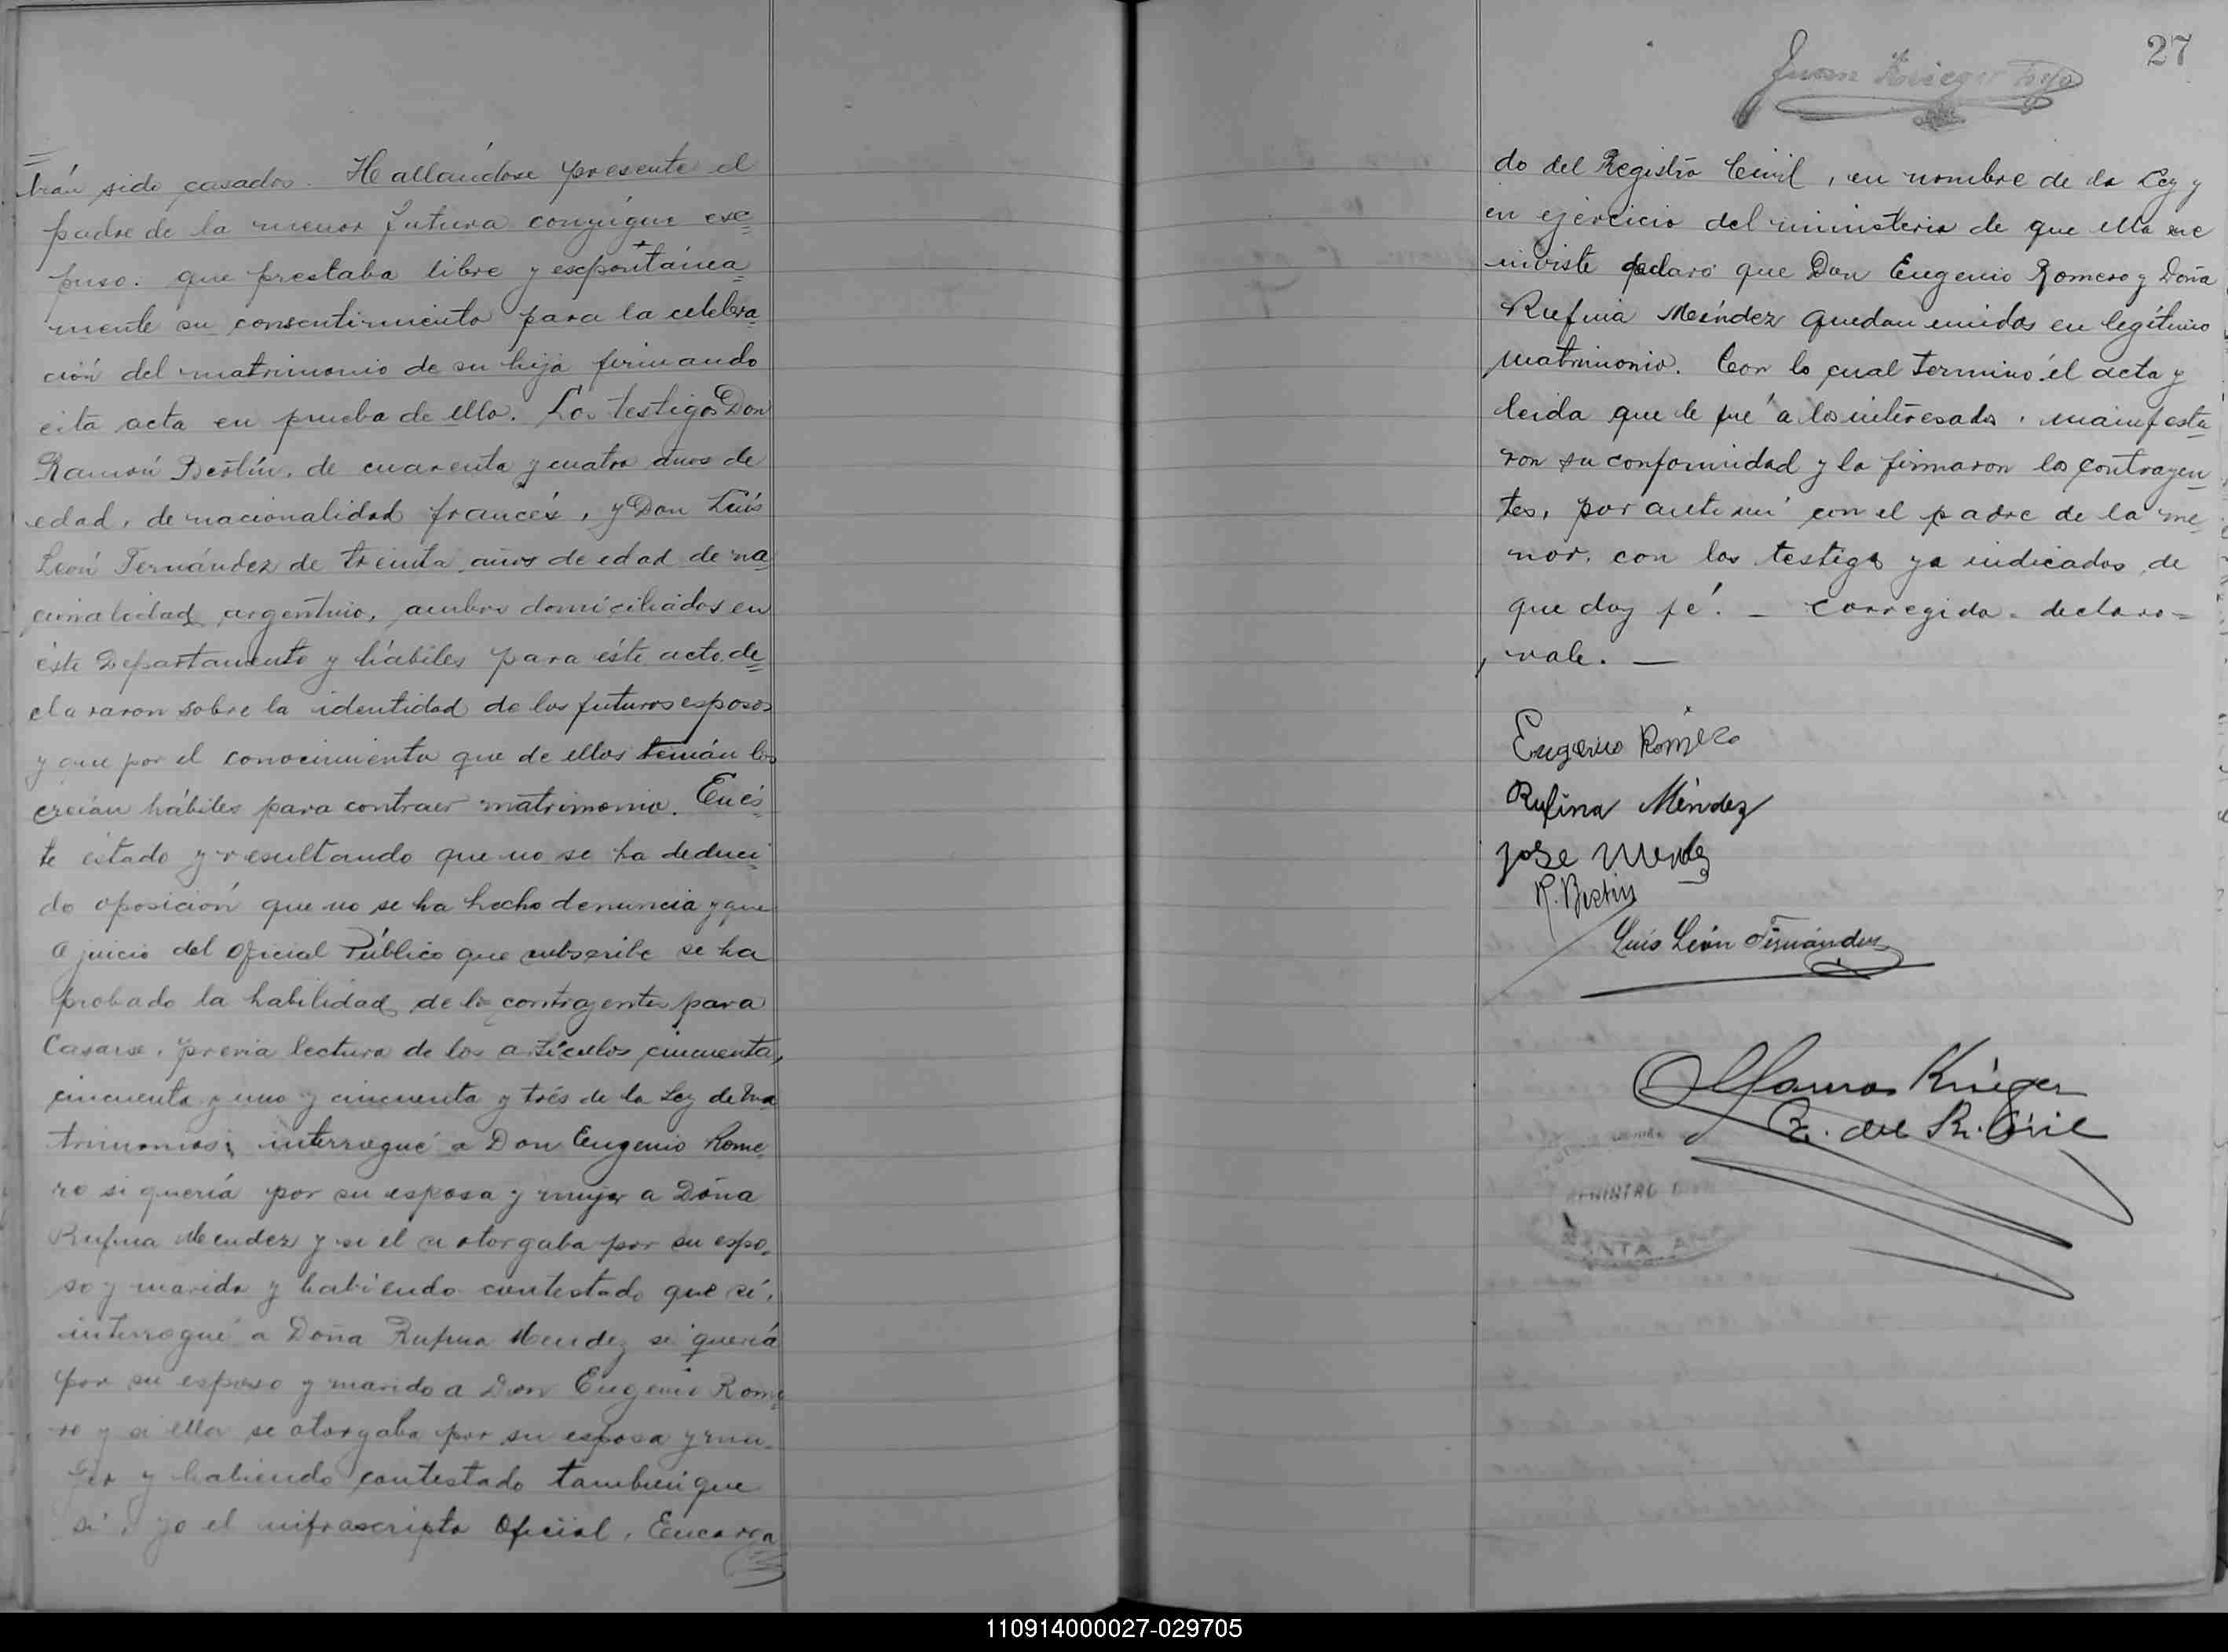 brán sido casados. Hallándose presente el
padre de la menor futura conyúgue ex=
puso: que prestaba libre y espontánea=
mente su consentimiento para la celebra=
ción del matrimonio de su hija firmando
esta acta en prueba de ello. Los testigos Don
Ramón Bestín, de cuarenta y cuatro años de
edad, de nacionalidad francés, y Don Luís
León Fernández de treinta años de edad de na=
cionalidad argentino, ambos domiciliados en
éste Departamento y hábiles para éste acto de=
clararon sobre la identidad de los futuros esposos
y que por el conocimiento que de ellos tenían los
creían hábiles para contraer matrimonio. En és=
te estado y resultando que no se ha deduci=
do oposición que no se ha hecho denuncia y que
a juicio del Oficial Público que subscribe se ha
probado la habilidad de los contrayentes para
Casarse, previa lectura de los artículos cincuenta,
cincuenta y uno y cincuenta y trés de la Ley de Ma
trimonios; interrogué a Don Eugenio Rome=
ro si quería por su esposa y mujer a Doña
Rufina Mendez y si el se otorgaba por su espo=
so y marido y habiendo contestado que sí,
interrogué a Doña Rufina Mendez si quería
por su esposo y marido a Don Eugenio Rome=
ro y si ella se otorgaba por su esposa y mu=
jer y habiendo contestado también que
sí, yo el infrascripto Oficial, Encarga
27
Juan Krieger hijo
do del Registro Civil, en nombre de la Ley y
en ejercicio del ministerio de que ella me
inviste declaró que Don Eugenio Romero y Doña
Rufina Méndez quedan unidos en legítimo
matrimonio. Con lo cual terminó el acta y
leida que le fué a los interesados, manifesta=
ron su conformidad y la firmaron los contrayen=
tes, por ante mí con el padre de la me=
nor, con los testigos ya indicados, de
que doy fé. — Corregido = declaro =
vale. —
Eugenio Romero
Rufina Méndez
Jose Mendez
R. Bestin
Luis León Fernández
Krieger
E. del R. Civil
REGISTRO CIVIL
SANTA ANA
110914000027-029705